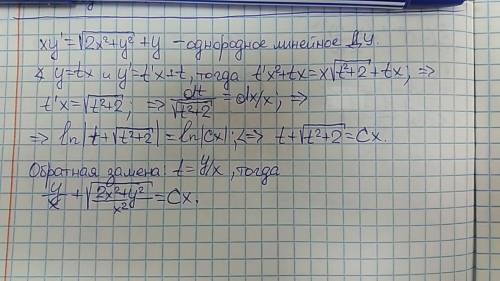 xy' = √(2x²+y²) + y – однородное линейное ДУ.
∢ y=tx и y'=t'x+t, тогда t'x²+tx=x√(t²+2)+tx; ⇒
t'x=√(t²+2); ⇒ dt/√(t²+2) = dx/x; ⇒
⇒ ln|t+√(t²+2)|=ln|Cx|; ⇔ t+√(t²+2)=Cx.
Обратная замена: t=y/x, тогда
y/x + √((2x²+y²)/x²) = Cx.